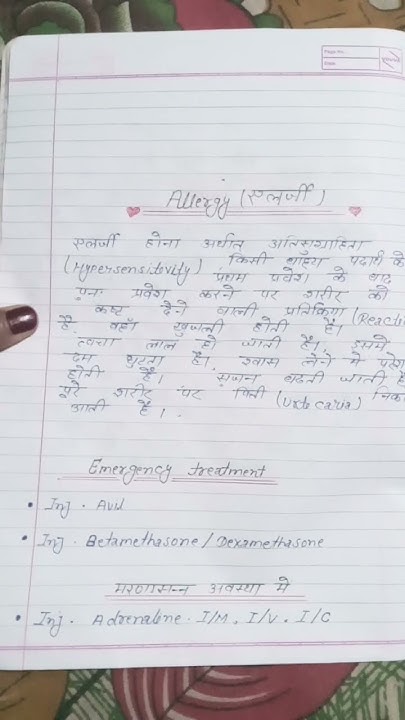 Page No.
Date
Allergy (एलर्जी)
एलर्जी होना अर्थात् अतिसुग्राहिता
(Hypersensitivity) किसी बाहरी पदार्थ के
प्रथम प्रवेश के बाद
पुनः प्रवेश करने पर शरीर को
कष्ट देने वाली प्रतिक्रिया (Reacti
है. वहाँ खुजली होती है।
त्वचा लाल हो जाती है। इसमें
दम घुटता है। श्वास लेने में परेश
होती है। सूजन बढती जाती है
पूरे शरीर पर पित्ती (Urtecaria) निक
आती है।.
Emergency treatment
• Inj. Avil
• Inj. Betamethasone/Dexamethasone
मरणासन्न अवस्था मे
• Inj. Adrenaline. I/M. I/V. I/C